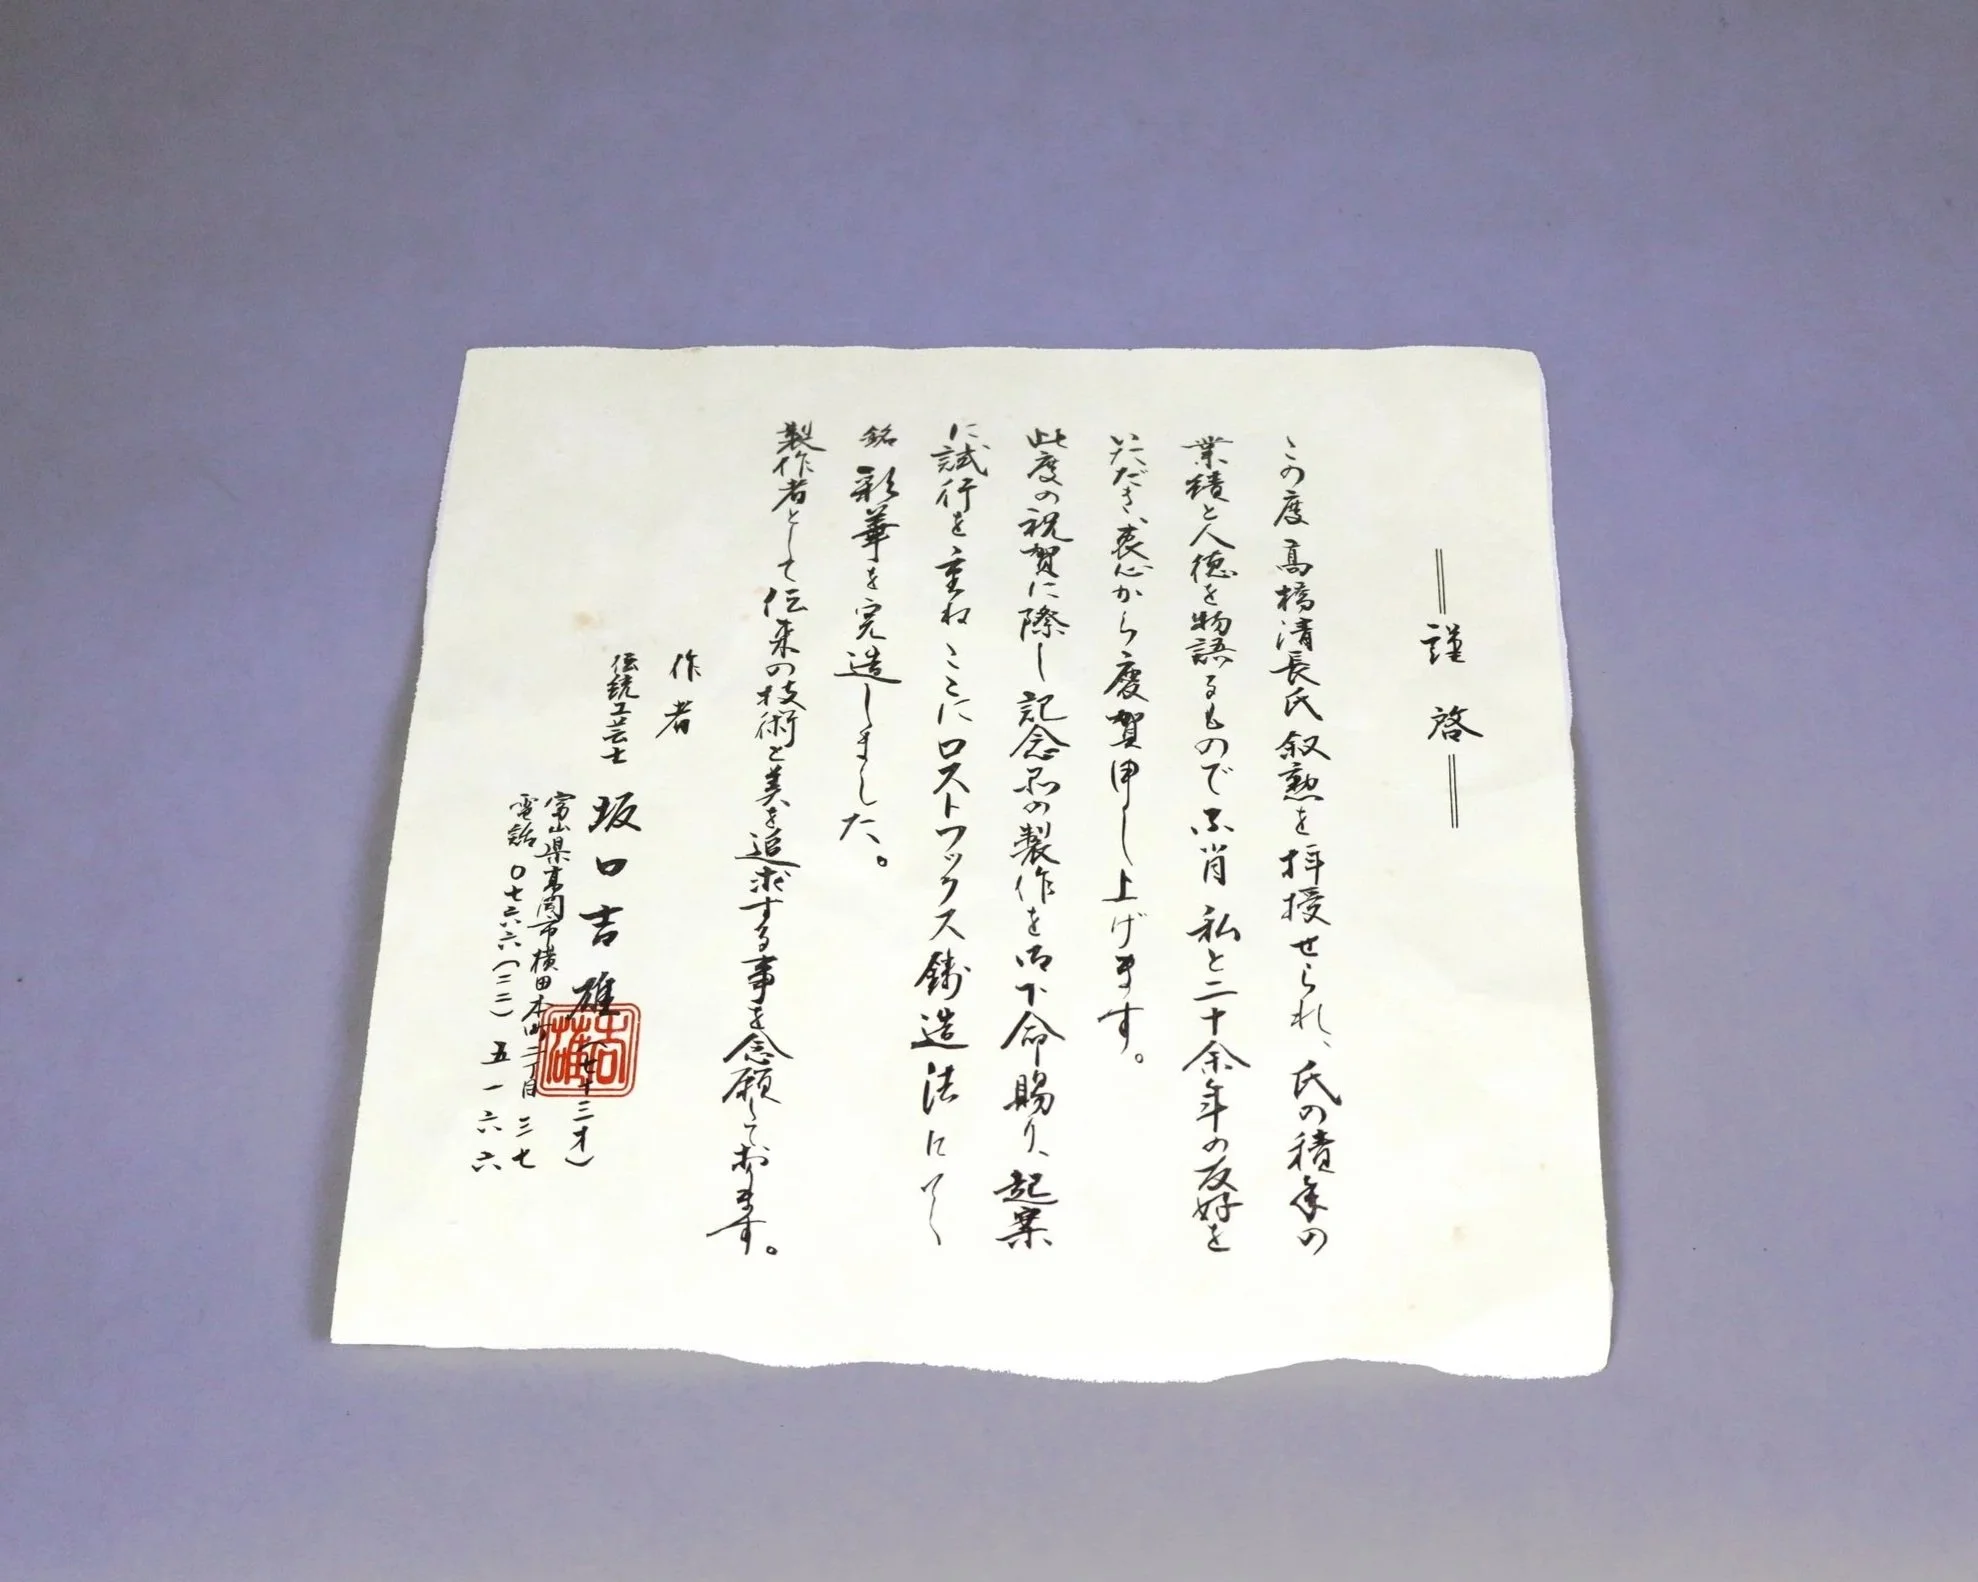 謹啓
この度高橋清長氏叙勲を拝授せられ、氏の積年の
業績と人徳を物語るもので不肖私と二十余年の友好を
いただき衷心から慶賀申し上げます。
此度の祝賀に際し記念品の製作を御下命賜り、起案
に試行を重ねここにロストワックス鋳造法にて
銘彩華を完造しました。
製作者として伝来の技術と美を追求する事を念願しております。
作者
伝統工芸士 坂口吉雄(七十三才)
富山県高岡市横田本町二丁目三七
電話〇七六六(二二)五一六六
吉雄